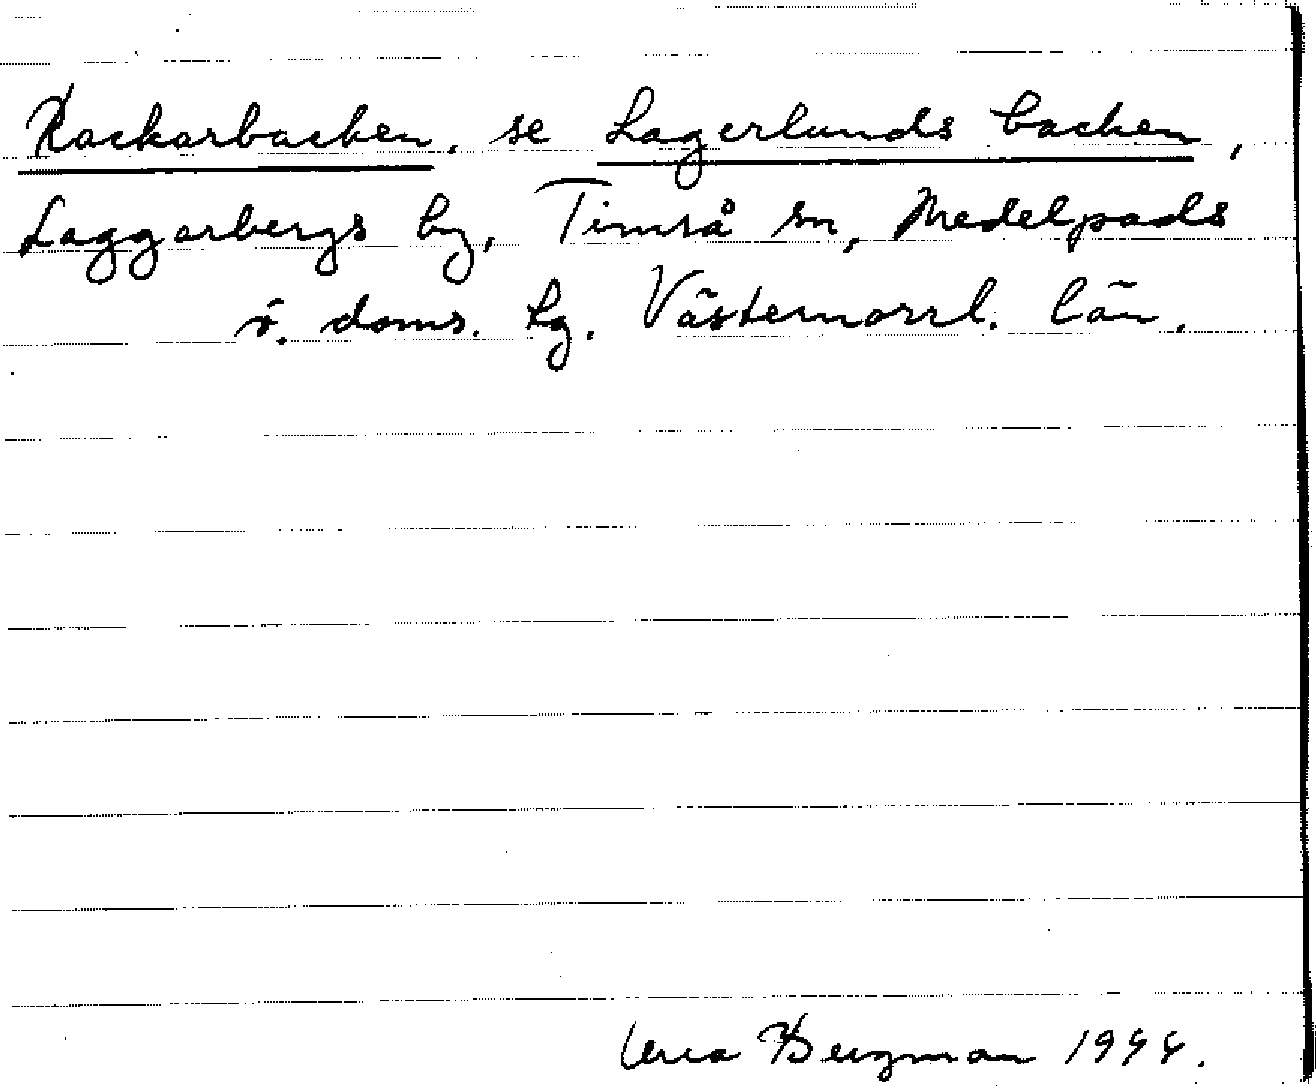 Rackarbacken, se Lagerlunds backen,
Laggarbergs by, Timrå sn, Medelpads
ö. doms. hg. Västernorrl. län.
Bergman 1944.